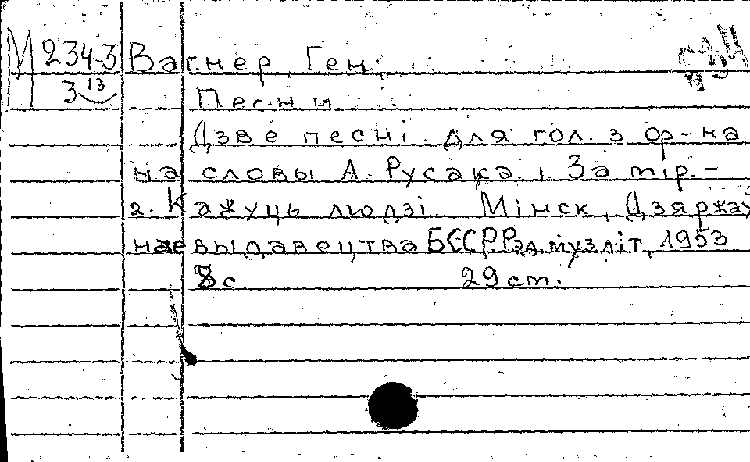 М 234-3 Вагнер, Ген.
3 13 Песни
Дзве песні для гол. з ор-на
на словы А. Русака. 1. За мір. –
2. Кажуць людзі. Мінск, Дзяржаў
нае выдавецтва БССР Рэд. музліт, 1953
8 с 29 cm.